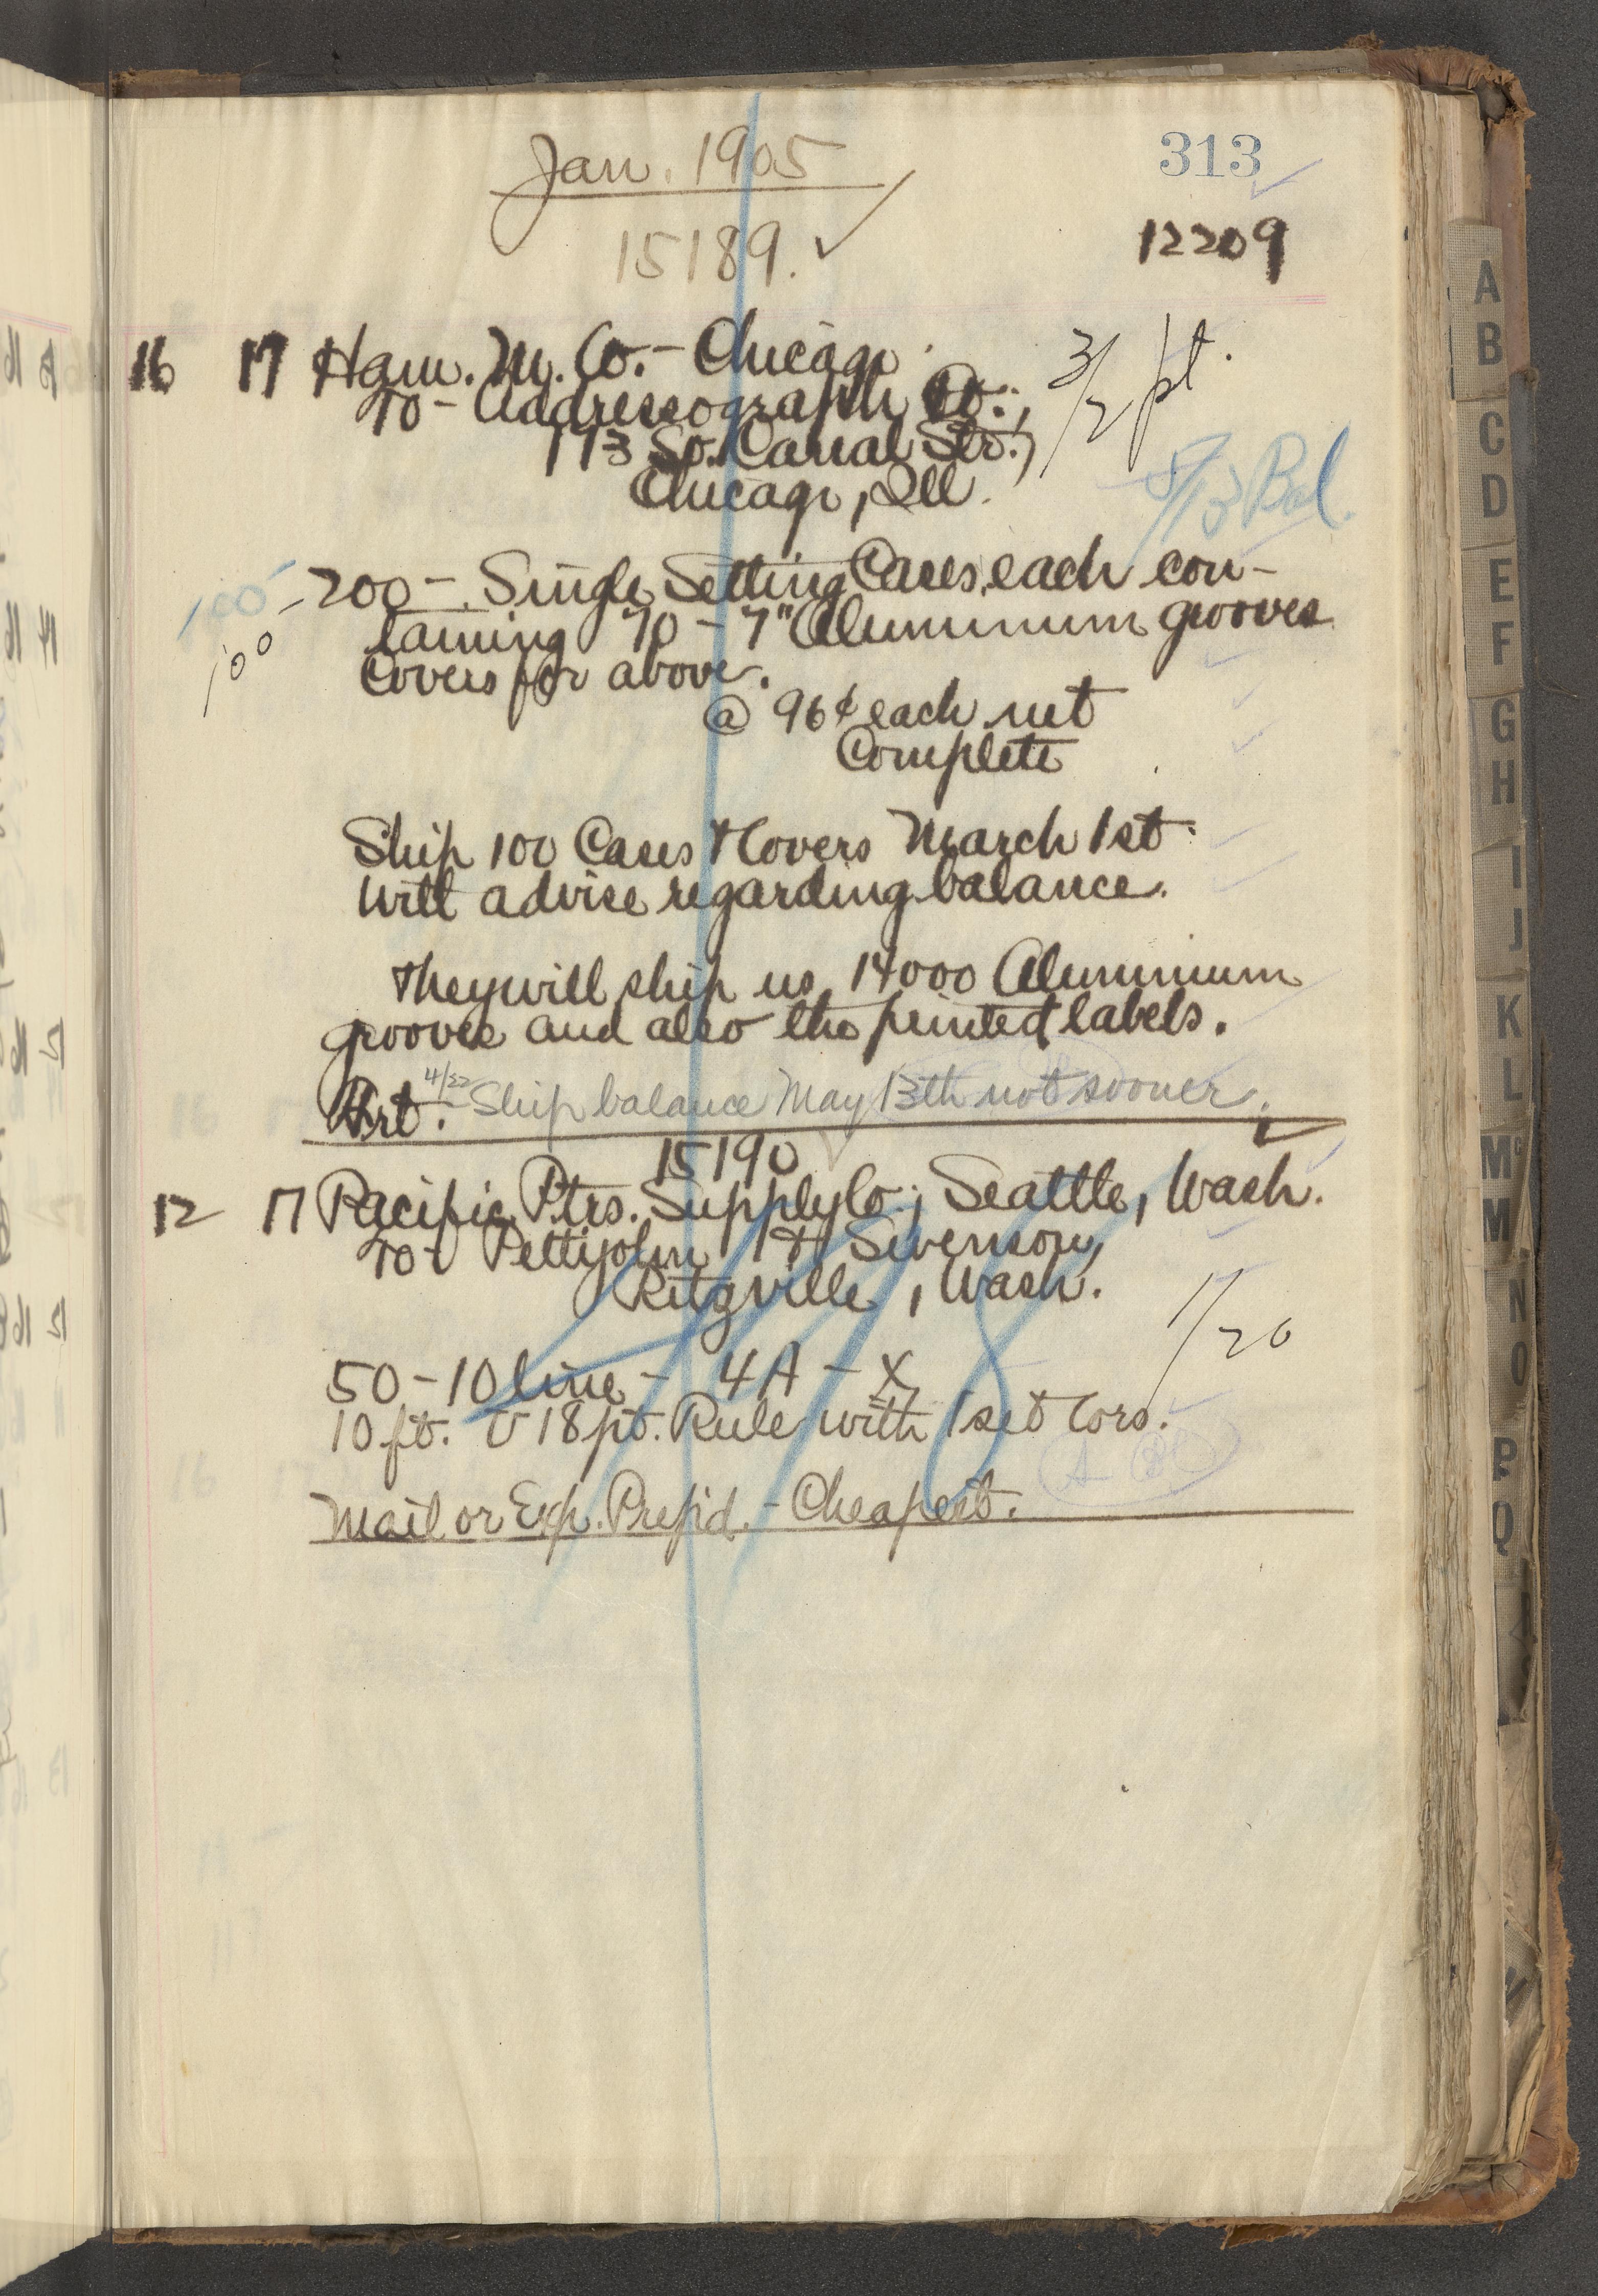 Jan. 1905
313
15189. ✓
12209
16 17 Ham. M. Co. - Chicago
3/2 pt.
To - Addressograph Co.,
173 So. Canal Str.,
Chicago, Ill.
5/13 Bal.
100 200 - Single Setting Cases, each con-
100 taining 70 - 7" Aluminum grooves
Covers for above.
@ 96¢ each net
Complete
Ship 100 Cases & Covers March 1st
Will advise regarding balance.
They will ship us 14000 Aluminium
grooves and also the printed labels.
Frt. 4/22 - Ship balance May 13th not sooner.
15190
12 17 Pacific Ptrs. Supply Co., Seattle, Wash.
To - Pettijohn & Swenson,
Ritzville, Wash.
1/20
50 - 10 line - 4A - X
10 ft. 18 pt. Rule with 1 set Cors.
Mail or Exp. Prep'd. - Cheapest.
A
B
C
D
E
F
G
H
I
J
K
L
Mc
M
N
O
P
Q